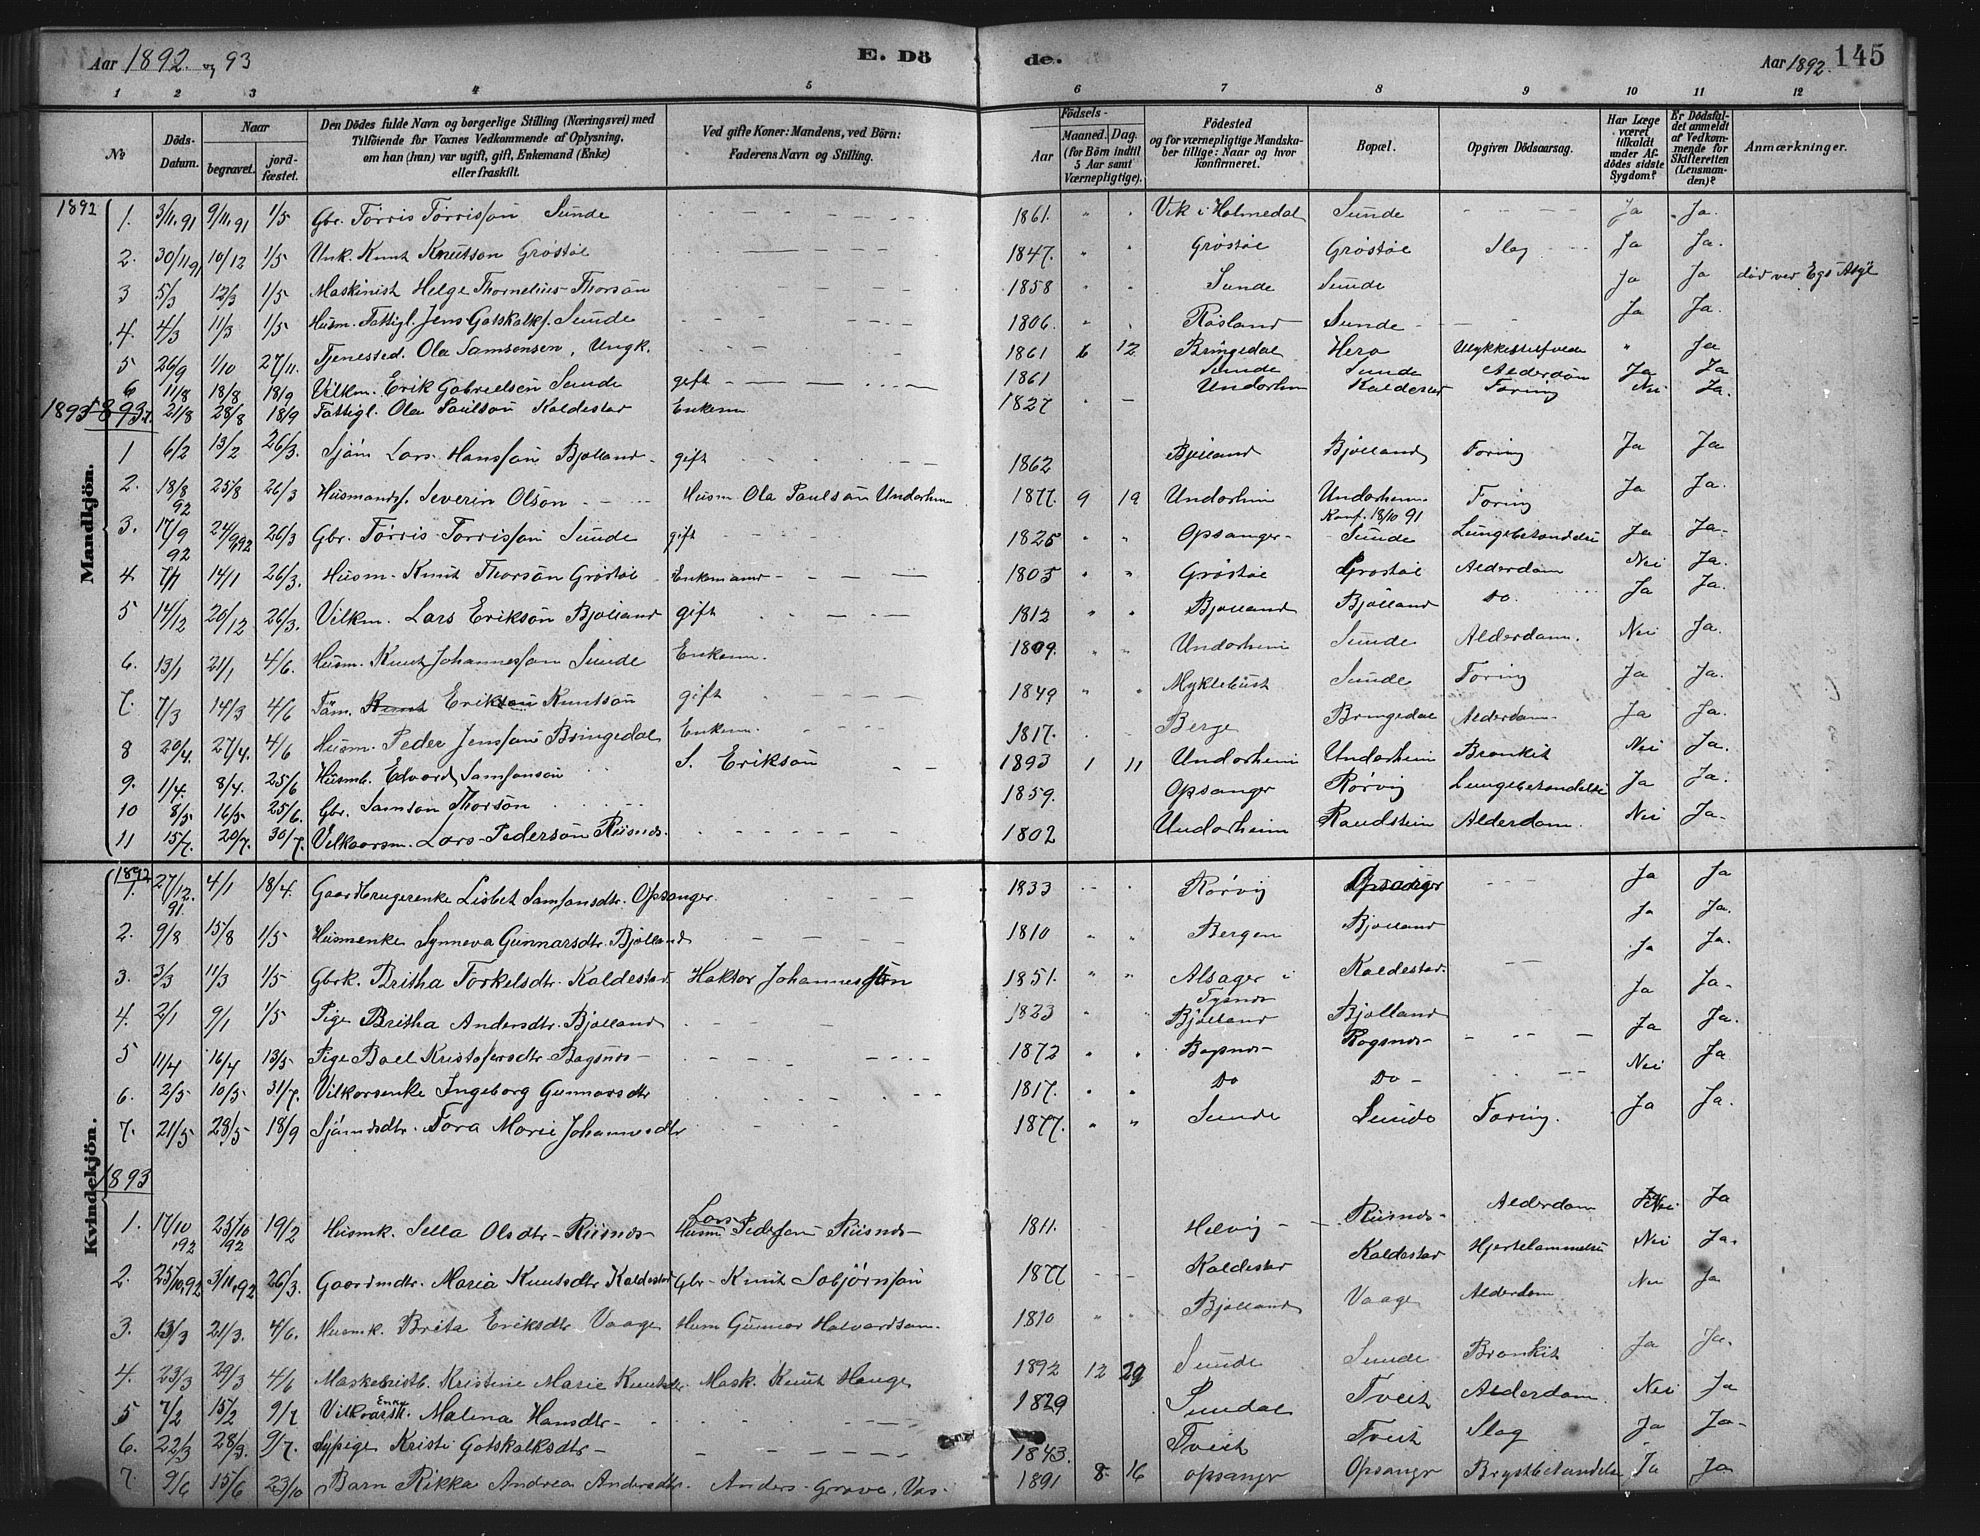 Aar 1892 og 93 E. Dö de. Aar 1892. 145
1 2 3 4 5 6 7 8 9 10 11 12
No
Döds-Datum.
Naar
begravet.
jord-fæstet.
Den Dödes fulde Navn og borgerlige Stilling (Næringsvei) med
Tilföiende for Voxnes Vedkommende af Oplysning,
om han (hun) var ugift, gift, Enkemand (Enke)
eller fraskilt.
Ved gifte Koner: Mandens, ved Börn:
Faderens Navn og Stilling.
Födsels-
Aar
Maaned. Dag.
(for Börn indtil
5 Aar samt
Værnepligtige).
Födested
og for værnepligtige Mandska-
ber tillige: Naar og hvor
konfirmeret.
Bopæl.
Opgiven Dödsaarsag.
Har Læge
været
tilkaldt
under Af-
dödes sidste
Sygdom?
Er Dödsfal-
det anmeldt
af Vedkom-
mende for
Skifteretten
(Lensman-
den)?
Anmærkninger.
Mandkjön.
1892
1. 3/11.91 9/11.91 1/5 Gbr. Tørris Tørrisson Sunde 1861. Vik i Holmedal Sunde Ja Ja.
2. 30/11 91 10/12 1/5 Unk. Knut Knutson Grøstøl 1847. Grøstøl Grøstøl Slag Ja Ja.
3 5/3 12/3 1/5 Maskinist Helge Thornelius Thorson 1858 Sunde Sunde Ja Ja død ved Egs Asyl
4. 4/3 11/3 1/5 Husm. Fattigl. Jens Gotskalks. Sunde 1806. Røsland Sunde Ja Ja.
5 26/9 1/10 27/11. Tjenested. Ola Samsonsen, Ungk. 1861 6 12 Bringedal Herø Ja
6 11/8 18/8 18/9 Vilkm. Erik Gabrielsen Sunde gift 1861 Sunde Sunde Alderdøm Ja Ja
7. 21/8 28/8 18/9 Fattigl. Ola Paulson Kaldestad Enkem 1827 Undarhm Kaldestad Tæring Nei Ja.
1893
1 6/2 13/2 26/3. Sjöm Lars Hansson Bjølland gift 1862 Bjølland Bjølland Tæring Ja Ja
2. 18/8 92 25/8 26/3 Husmands. Severin Olson Husm Ola Paulson Undarhm 1877. 9 19 Undarhim Undarheim Konf. 18/10 91 Tæring Ja Ja.
3. 17/9 92 24/9 92 26/3 Gbr. Tørris Torrisson Sunde gift 1825 Opsanger Sunde Lungebetændelse Ja Ja
4. 7/1 14/1 26/3. Husm. Knut Thorson Grøstøl Enkemand 1805 Grøstøl Grøstøl Alderdom Nei Ja.
5 14/12 20/12 26/3. Vilkm. Lars Erikson Bjølland gift 1812 Bjølland Bjølland Do. Ja Ja.
6. 13/1 21/1 4/6. Husm. Knut Johannesson Sunde Enkem. 1809. Undarhim Sunde Alderdom. Nei Ja.
7. 7/3 14/3 4/6 Erikson Knutson gift 1849 Myklebust Sunde Tæring Ja Ja.
8 20/4. 27/4. 4/6 Husm. Peder Jensson Bringedal Enkem. 1817. Berge Bringedal Alderdom Ja Ja.
9. 1/4. 8/4. 25/6 Husmb. Edvard Samsonson S. Erikson 1893 1 11 Undarheim Undarheim Bronkit Nei Ja.
10 8/5 16/5 25/6. Gbr. Samson Thorson 1859. Opsanger Rørvig Lungebetændelse Ja Ja.
11 15/7. 20/7. 30/7. Vilkaarsm. Lars Pederson Riisnes. 1802 Undarheim Raudstein Alderdom. Nei Ja.
Kvindekjön.
1892
1. 27/12. 91. 4/1 18/4. Gaardbrugerenke Lisbet Samsonsdtr. Opsanger. 1833 Rørvig Opsanger Ja Ja
2. 9/8 15/8 1/5 Husmenke Synneva Gunnarsdtr. Bjølland 1810 Bergen Bjølland Ja Ja.
3. 3/3 11/3 1/5 Gbrk. Britha Torkelsdtr. Kaldestad Haktor Johannesson 1851. Alsager i Tysnes Kaldestad. Ja Ja.
4. 2/1 9/1 1/5 Pige Britha Andersdtr. Bjølland 1823 Bjølland Bjølland Ja Ja.
5 11/4 16/4 13/5 Pige Boel Kristofersdtr. Bogsnes 1872 Bogsnes Bogsnes Ja Ja.
6. 2/5 10/5 31/7. Vilkorsenke Ingeborg Gunnarsdtr 1817. Do Do Nei Ja
7. 21/5 28/5 18/9 Sjömdsdtr. Tora Marie Johannesdtr 1877. Sunde Sunde Tæring. Ja Ja.
1893
1. 17/10 92 25/10 92 19/2 Husmk. Sella Olsdtr Riisnes Husm Lars Pederson Riisnes 1811. Helvig Riisnes Alderdom Nei Ja
2. 25/10.92 3/11.92 26/3. Gaardmdtr. Maria Knutsdtr Kaldestad Gbr Knut Sobjørnson 1877 Kaldestad Kaldestad Hjertelammelse Nei Ja.
3. 13/3 21/3. 4/6. Husmk. Brita Eriksdtr Vaage Husm Gunnar Halvardson. 1810 Bjølland Vaage Alderdom Nei Ja
4. 23/3 29/3 4/6 Kristine Marie Knutsdtr. Mask. Knut Hauge 1892 12 29 Sunde Sunde Bronkit Ja Ja.
5 7/2 15/2 9/7 Malena Hansdtr 1829 Sundal Tveit Alderdom Nei Ja
6. 22/3 28/3. 9/7. Sypige Kristi Gotskalksdtr 1843. Tveit Tveit Slag Ja Ja
7. 9/6 15/6 23/10 Barn Rikka Andrea Andersdtr. Anders Grove, Vos. 1891 8 16 Opsangr Opsangr Brystbetændelse Ja Ja